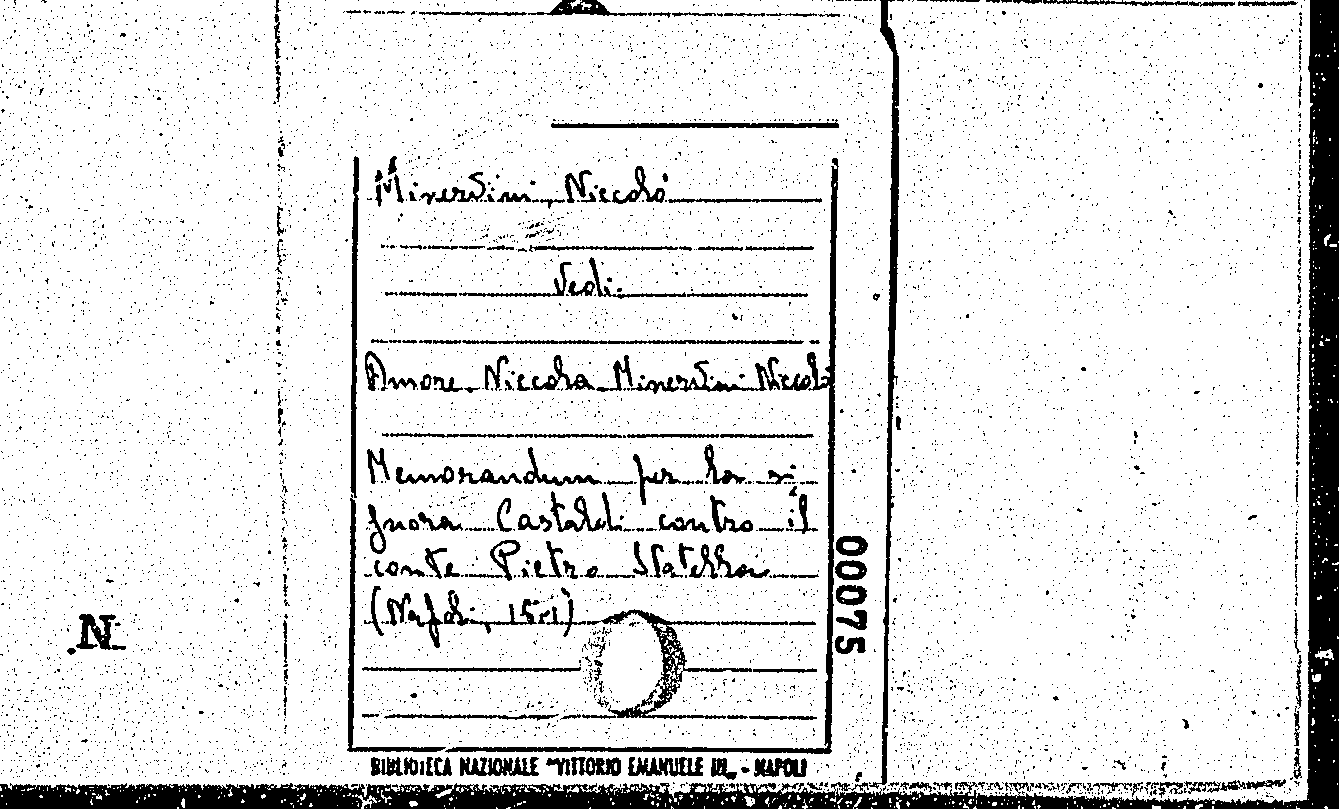 Minervini, Niccolò
Vedi:
Amore Niccola Minervini Niccolò
Memorandum per la si
gnora Castaldi contro il
conte Pietro Statella
(Napoli,
00075
N.
BIBLIOTECA NAZIONALE "VITTORIO EMANUELE III" - NAPOLI